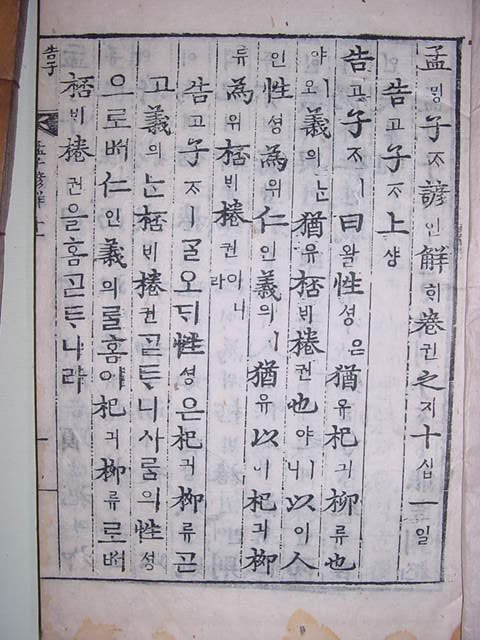 孟ᄆᆡᆼ子ᄌᆞ諺언解ᄒᆡ卷권之지十십一일
告고子ᄌᆞ上샹
告고子ᄌᆞㅣ曰왈性셩은猶유杞긔柳류也
야ㅣ오義의ᄂᆞᆫ猶유桮ᄇᆡ棬권也야ㅣ니以이人
인性셩為위仁인義의ㅣ猶유以이杞긔柳
류為위桮ᄇᆡ棬권이니라
告고子ᄌᆞㅣᄀᆞᆯ오ᄃᆡ性셩은杞긔柳류ᄀᆞᆮ
고義의ᄂᆞᆫ桮ᄇᆡ棬권ᄀᆞᆮᄐᆞ니사ᄅᆞᆷ의性셩
으로ᄡᅥ仁인義의ᄅᆞᆯ홈이杞긔柳류로ᄡᅥ
桮ᄇᆡ棬권을홈ᄀᆞᆮᄐᆞ니라
告子
孟子諺解十一